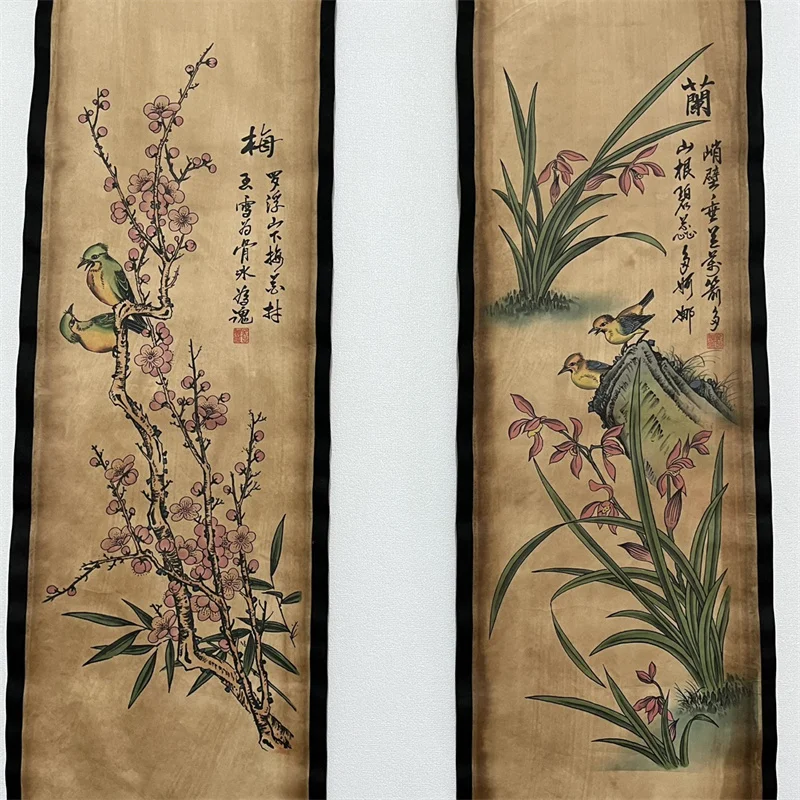 梅
罗浮山下梅花村
玉雪为骨冰为魂
蘭
峭壁垂兰万箭多
山根碧蕊多婀娜